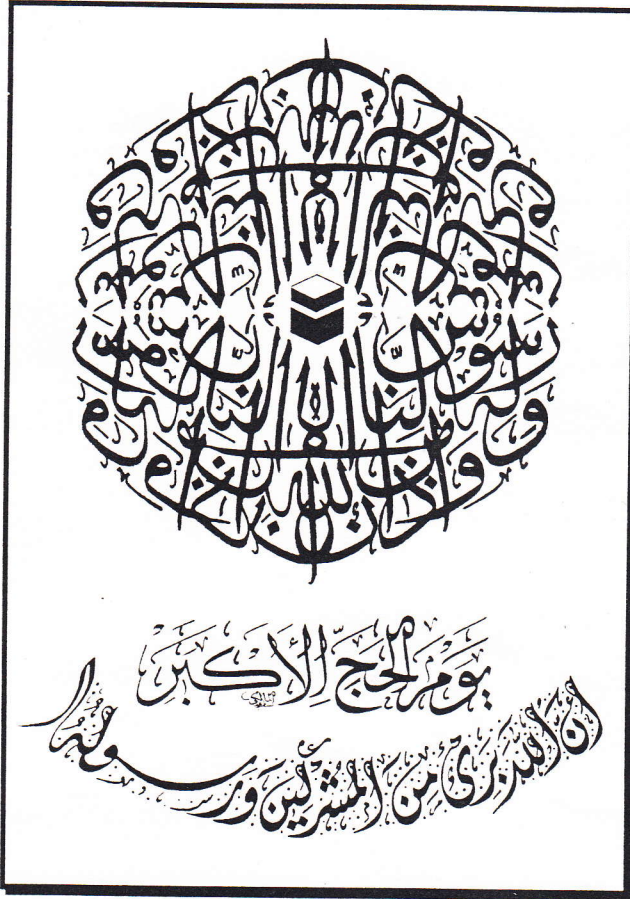 وأذان من الله ورسوله إلى الناس
يَوْمَ الْحَجِّ الْأَكْبَرِ
أَنَّ اللَّهَ بَرِيءٌ مِنَ الْمُشْرِكِينَ وَرَسُولُهُ